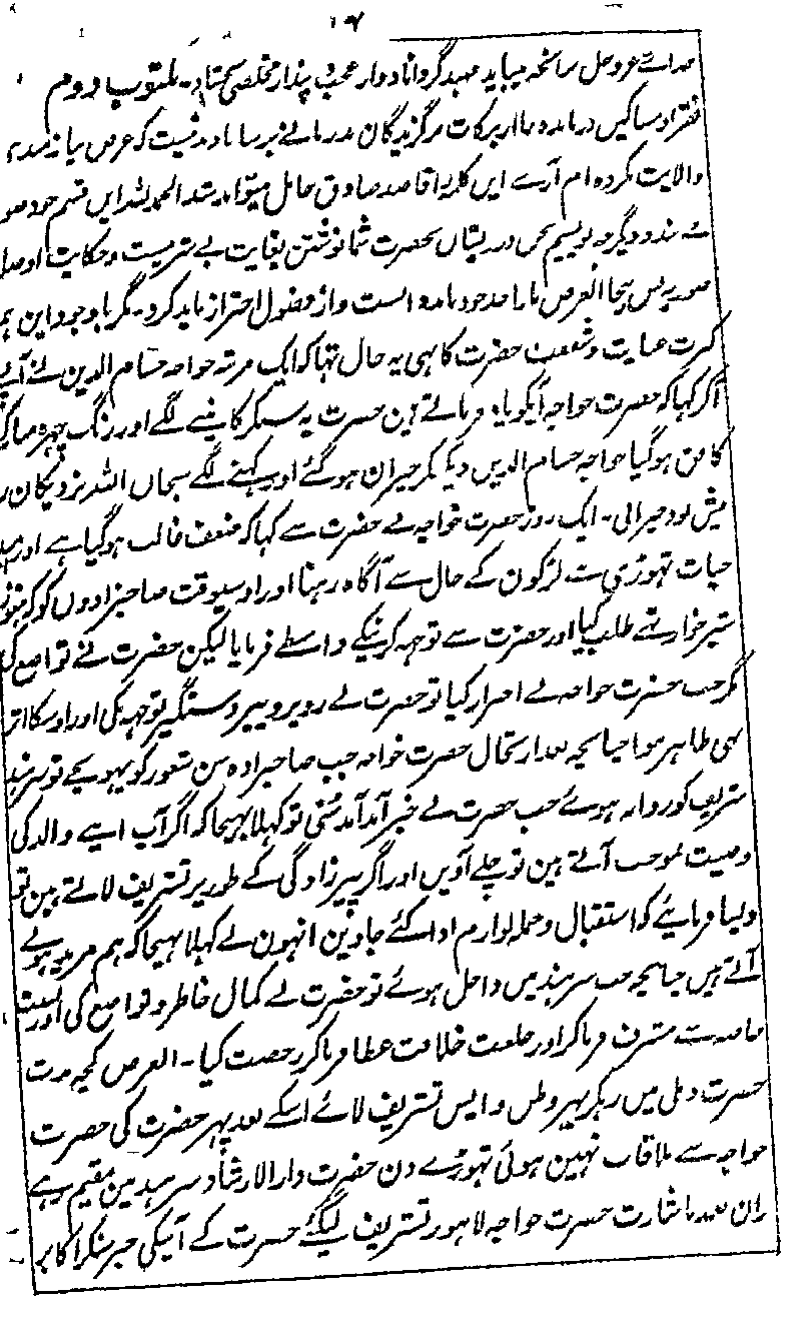 ۱۶
خداے عزوجل سانحہ میباید مہبد گرداناد وار محب پندار مخلصی سختاد۔ مکتوب دوم
فقرا و مساکین درماندہ ما از برکات برگزیدگان خدا مے برسا باد مدتیست کہ عرض نیازمندی
والایت نکردہ ام آرے این کلمہ را قاصد صادق حامل میتواند شد الحمد للہ این قسم خود
دیگر چہ نویسم سخن درویشان بحضرت شما نوشتن بغایت بے شرمیست و حکایت
بس بیجا الغرض مارا حد خود باید دانست و از فضول احتراز باید کرد۔ مگر باوجود این
کثرت عنایت و شفقت حضرت کا بہی یہ حال تہا کہ ایک مرتبہ خواجہ حسام الدین نے آپسے
آکر کہا کہ حضرت خواجہ آپکو یاد فرماتے ہین حضرت یہ سنکر کانپنے لگے اور رنگ چہرہ مبارک
کا فق ہو گیا خواجہ حسام الدین دیکہکر حیران ہو گئے اور کہنے لگے سبحان اللہ نزدیکان را
بیش بود حیرانی۔ ایک روز حضرت خواجہ نے حضرت سے کہا کہ ضعف غالب ہو گیا ہے اور امید
حیات تہوڑی ہے لڑکون کے حال سے آگاہ رہنا اور اوسیوقت صاحبزادوں کو کہ ہنوز
شیرخوار تہے طلب کیا اور حضرت سے توجہہ کرنیکے واسطے فرمایا لیکن حضرت نے تواضع کی
مگر جب حضرت خواجہ نے اصرار کیا تو حضرت نے روبرو پیر دستگیر توجہہ کی اور اوسکا اثر
بہی ظاہر ہوا چنانچہ بعد ارتحال حضرت خواجہ جب صاحبزادہ سن شعور کو پہونچے تو سرہند
شریف کو روانہ ہوئے جب حضرت نے خبر آمد آمد سُنی تو کہلا بہیجا کہ اگر آپ اپنے والد کی
وصیت بموجب آتے ہین تو چلے آویں اور اگر پیرزادگی کے طور پر تشریف لاتے ہین تو
ویسا فرمایئے کہ استقبال و جملہ لوازم ادا کئے جاوین انہون نے کہلا بہیجا کہ ہم مرید ہونے
آتے ہیں چنانچہ جب سرہند میں داخل ہوئے تو حضرت نے کمال خاطر و تواضع کی اور نسبت
خاصہ سے مشرف فرماکر اور خلعت خلافت عطا فرماکر رخصت کیا۔ الغرض کچہہ مدت
حضرت دہلی میں رہکر پہر وطن واپس تشریف لائے اسکے بعد پہر حضرت کی حضرت
خواجہ سے ملاقات نہین ہوئی تہوڑے دن حضرت دار الارشاد سرہند مین مقیم رہے
ازان بعد باشارت حضرت خواجہ لاہور تشریف لیگئے حضرت کے آنیکی خبر سنکر اکابر